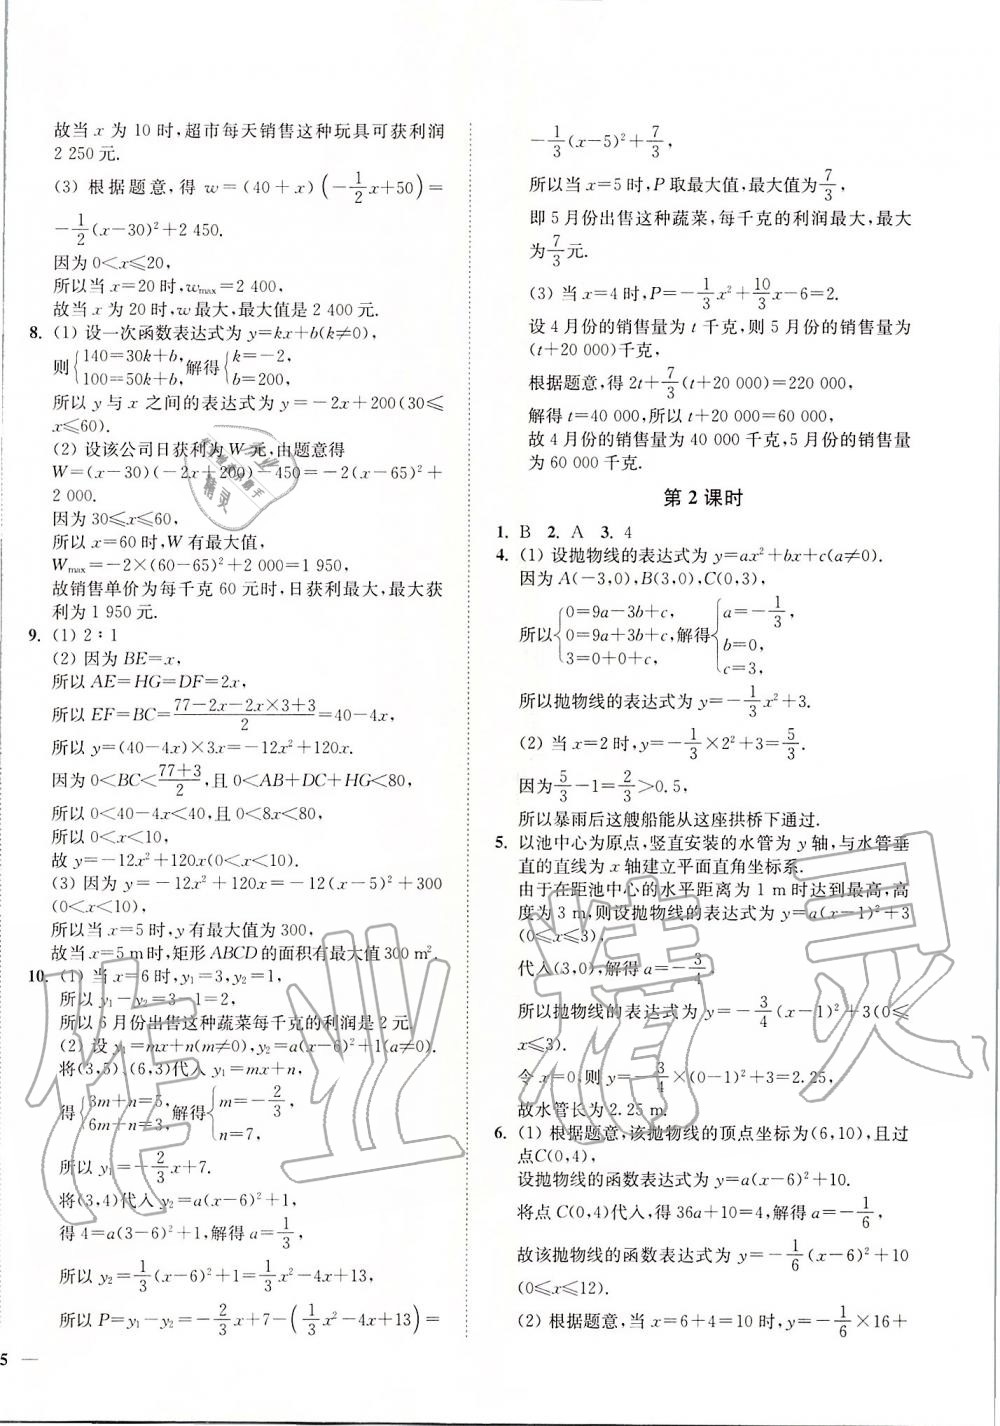 故当 x 为 10 时,超市每天销售这种玩具可获利润
2 250元.
(3) 根据题意,得 w=(40+x)(-1/2x+50)=
-1/2(x-30)²+2 450.
因为 0<x≤20,
所以当 x=20 时,wmax=2 400,
故当 x 为 20 时,w 最大,最大值是 2 400 元.
8. (1) 设一次函数表达式为 y=kx+b(k≠0),
则{140=30k+b, 100=50k+b, 解得{k=-2, b=200,
所以 y 与 x 之间的表达式为 y=-2x+200(30≤
x≤60).
(2) 设该公司日获利为 W 元,由题意得
W=(x-30)(-2x+200)-450=-2(x-65)²+
2 000.
因为 30≤x≤60,
所以 x=60 时,W 有最大值,
Wmax=-2×(60-65)²+2 000=1 950,
故销售单价为每千克 60 元时,日获利最大,最大获
利为 1 950 元.
9. (1) 2∶1
(2) 因为 BE=x,
所以 AE=HG=DF=2x,
所以 EF=BC=(77-2x-2x×3+3)/2=40-4x,
所以 y=(40-4x)×3x=-12x²+120x.
因为 0<BC<(77+3)/2,且 0<AB+DC+HG<80,
所以 0<40-4x<40,且 0<8x<80,
所以 0<x<10,
故 y=-12x²+120x(0<x<10).
(3) 因为 y=-12x²+120x=-12(x-5)²+300
(0<x<10),
所以当 x=5 时,y 有最大值为 300,
故当 x=5 m 时,矩形 ABCD 的面积有最大值 300 m².
10. (1) 当 x=6 时,y₁=3,y₂=1,
所以 y₁-y₂=3-1=2,
所以 6 月份出售这种蔬菜每千克的利润是 2 元.
(2) 设 y₁=mx+n(m≠0),y₂=a(x-6)²+1(a≠0).
将(3,5),(6,3)代入 y₁=mx+n,
得{3m+n=5, 6m+n=3, 解得{m=-2/3, n=7,
所以 y₁=-2/3x+7.
将(3,4)代入 y₂=a(x-6)²+1,
得 4=a(3-6)²+1,解得 a=1/3,
所以 y₂=1/3(x-6)²+1=1/3x²-4x+13,
所以 P=y₁-y₂=-2/3x+7-(1/3x²-4x+13)=
5
-1/3(x-5)²+7/3,
所以当 x=5 时,P 取最大值,最大值为7/3,
即 5 月份出售这种蔬菜,每千克的利润最大,最大
为7/3元.
(3) 当 x=4 时,P=-1/3x²+10/3x-6=2.
设 4 月份的销售量为 t 千克,则 5 月份的销售量为
(t+20 000)千克,
根据题意,得 2t+7/3(t+20 000)=220 000,
解得 t=40 000,所以 t+20 000=60 000,
故 4 月份的销售量为 40 000 千克,5 月份的销售量
为 60 000 千克.
第 2 课时
1. B 2. A 3. 4
4. (1) 设抛物线的表达式为 y=ax²+bx+c(a≠0).
因为 A(-3,0),B(3,0),C(0,3),
所以{0=9a-3b+c, 0=9a+3b+c, 3=0+0+c, 解得{a=-1/3, b=0, c=3,
所以抛物线的表达式为 y=-1/3x²+3.
(2) 当 x=2 时,y=-1/3×2²+3=5/3.
因为5/3-1=2/3>0.5,
所以暴雨后这艘船能从这座拱桥下通过.
5. 以池中心为原点,竖直安装的水管为 y 轴,与水管垂
直的直线为 x 轴建立平面直角坐标系.
由于在距池中心的水平距离为 1 m 时达到最高,高
度为 3 m,则设抛物线的表达式为 y=a(x-1)²+3
(0≤x≤3),
代入(3,0),解得 a=-3/4,
所以抛物线的表达式为 y=-3/4(x-1)²+3(0≤
x≤3).
令 x=0,则 y=-3/4×(0-1)²+3=2.25,
故水管长为 2.25 m.
6. (1) 根据题意,该抛物线的顶点坐标为(6,10),且过
点C(0,4),
设抛物线的表达式为 y=a(x-6)²+10.
将点 C(0,4)代入,得 36a+10=4,解得 a=-1/6,
故该抛物线的函数表达式为 y=-1/6(x-6)²+10
(0≤x≤12).
(2) 根据题意,当 x=6+4=10 时,y=-1/6×16+
作业精灵